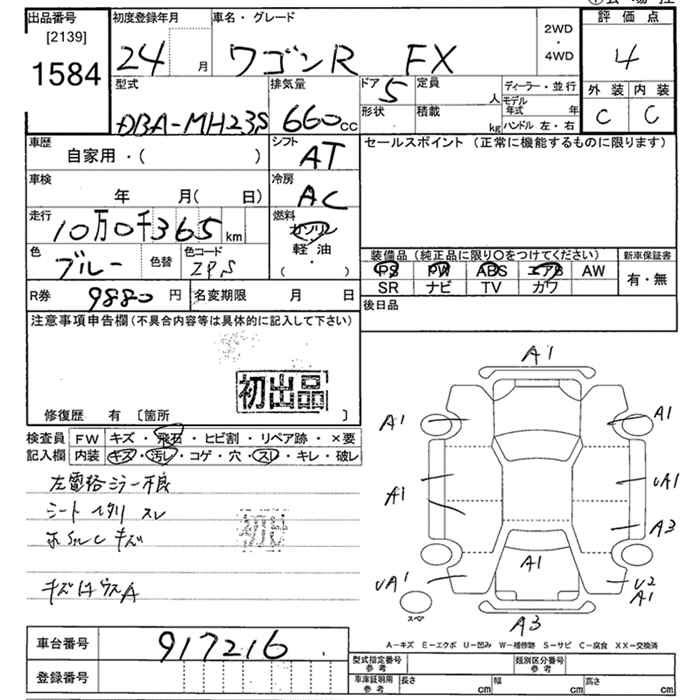 出品番号 初度登録年月 車名・グレード 評価点
[2139] 2WD
1584 24 月 ワゴンR FX ・ 4
4WD
型式 排気量 ドア 5 定員 人 ディーラー・並行 外装 内装
DBA-MH23S 660cc 形状 積載 kg モデル年式 年 C C
ハンドル 左・右
車歴 シフト セールスポイント (正常に機能するものに限ります)
自家用・( ) AT
車検 冷房
年 月( 日) AC
走行 燃料
10万0千365 km ガソリン
色 ブルー 色替 色コード ZPS 軽・油 装備品 (純正品に限り〇をつけてください) 新車保証書
・( ) PS PW ABS エアB AW 有・無
R券 9880円 名変期限 月 日 SR ナビ TV カワ
注意事項申告欄(不具合内容等は具体的に記入して下さい) 後日品
初出品
修復歴 有 〔箇所 〕
検査員 FW キズ・飛石・ヒビ割・リペア跡・×要
記入欄 内装 キズ・汚レ・コゲ・穴・スレ・キレ・破レ
左電格ミラー不良
シート ヘタリ スレ
キズ
A1
A1 A1
A1 UA1
A3
A1
UA1 U2
A1
スペア
A3
A-キズ E-エクボ U-凹み W-補修跡 S-サビ C-腐食 XX-交換済
車台番号 917216
型式指定番号 参考 類別区分番号 参考
登録番号
車庫証明用 参考 長さ cm 幅 cm 高さ cm